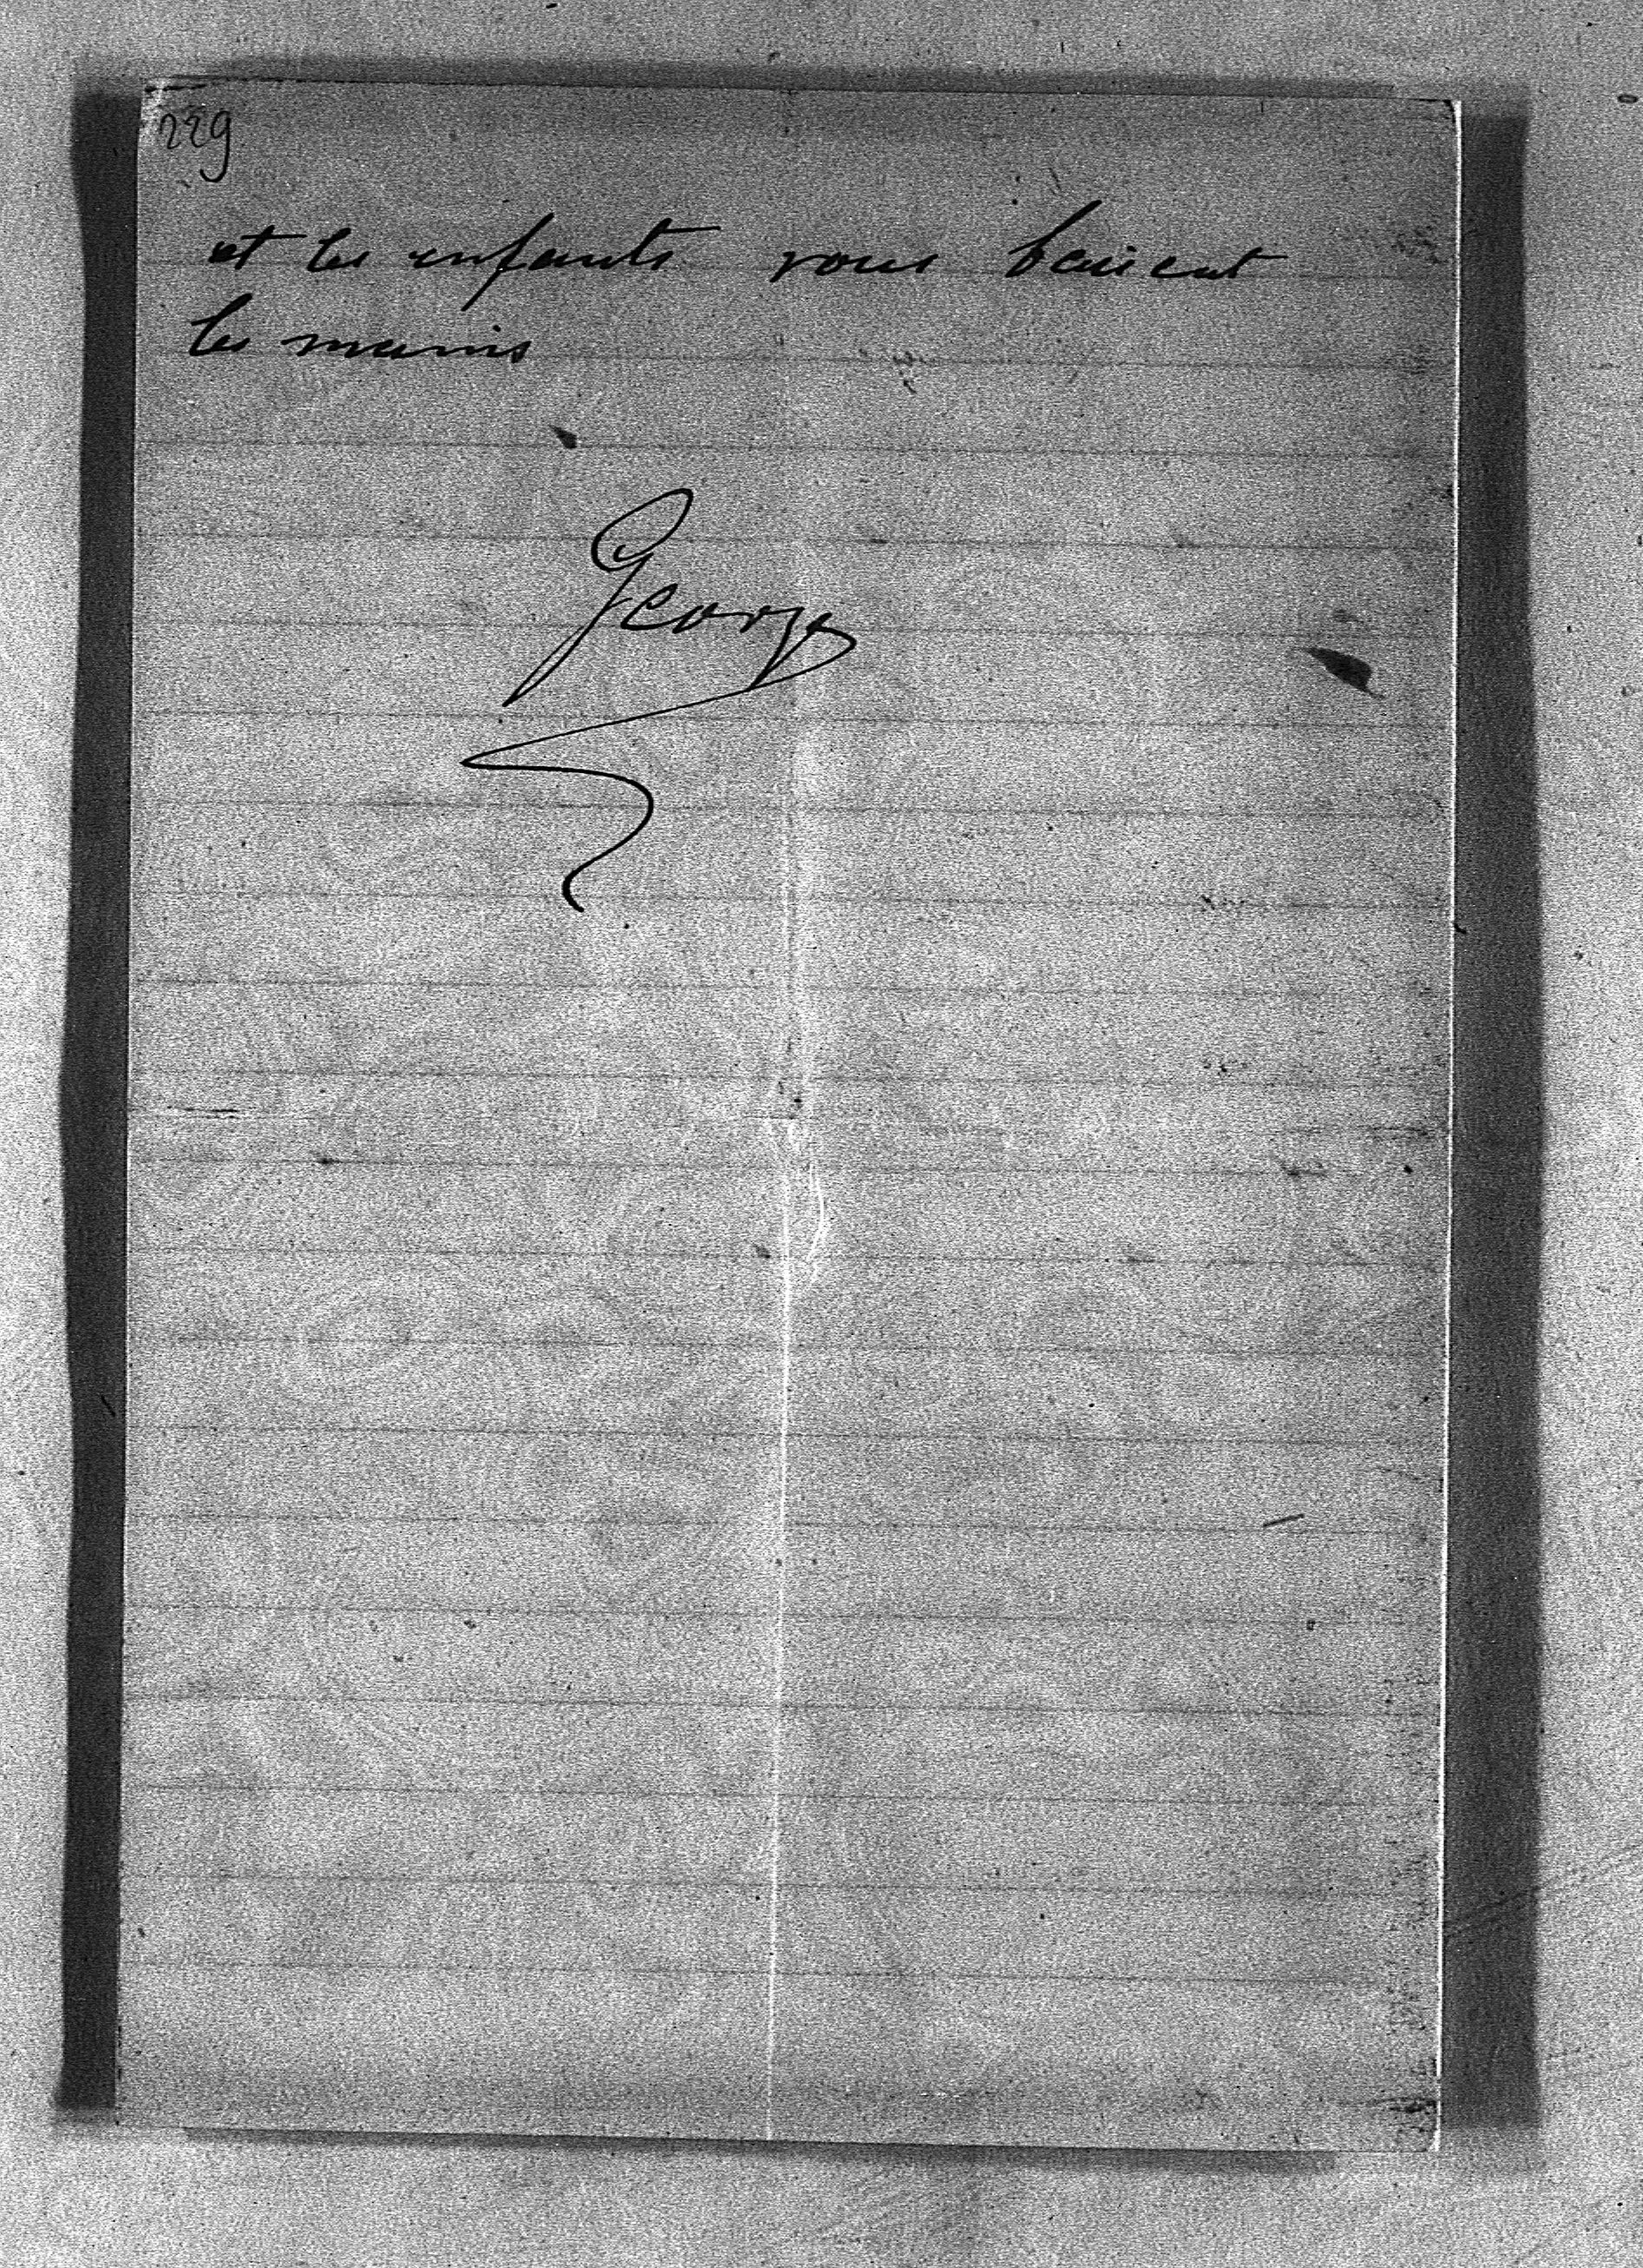 229
et les enfants vous baisent
les mains
George